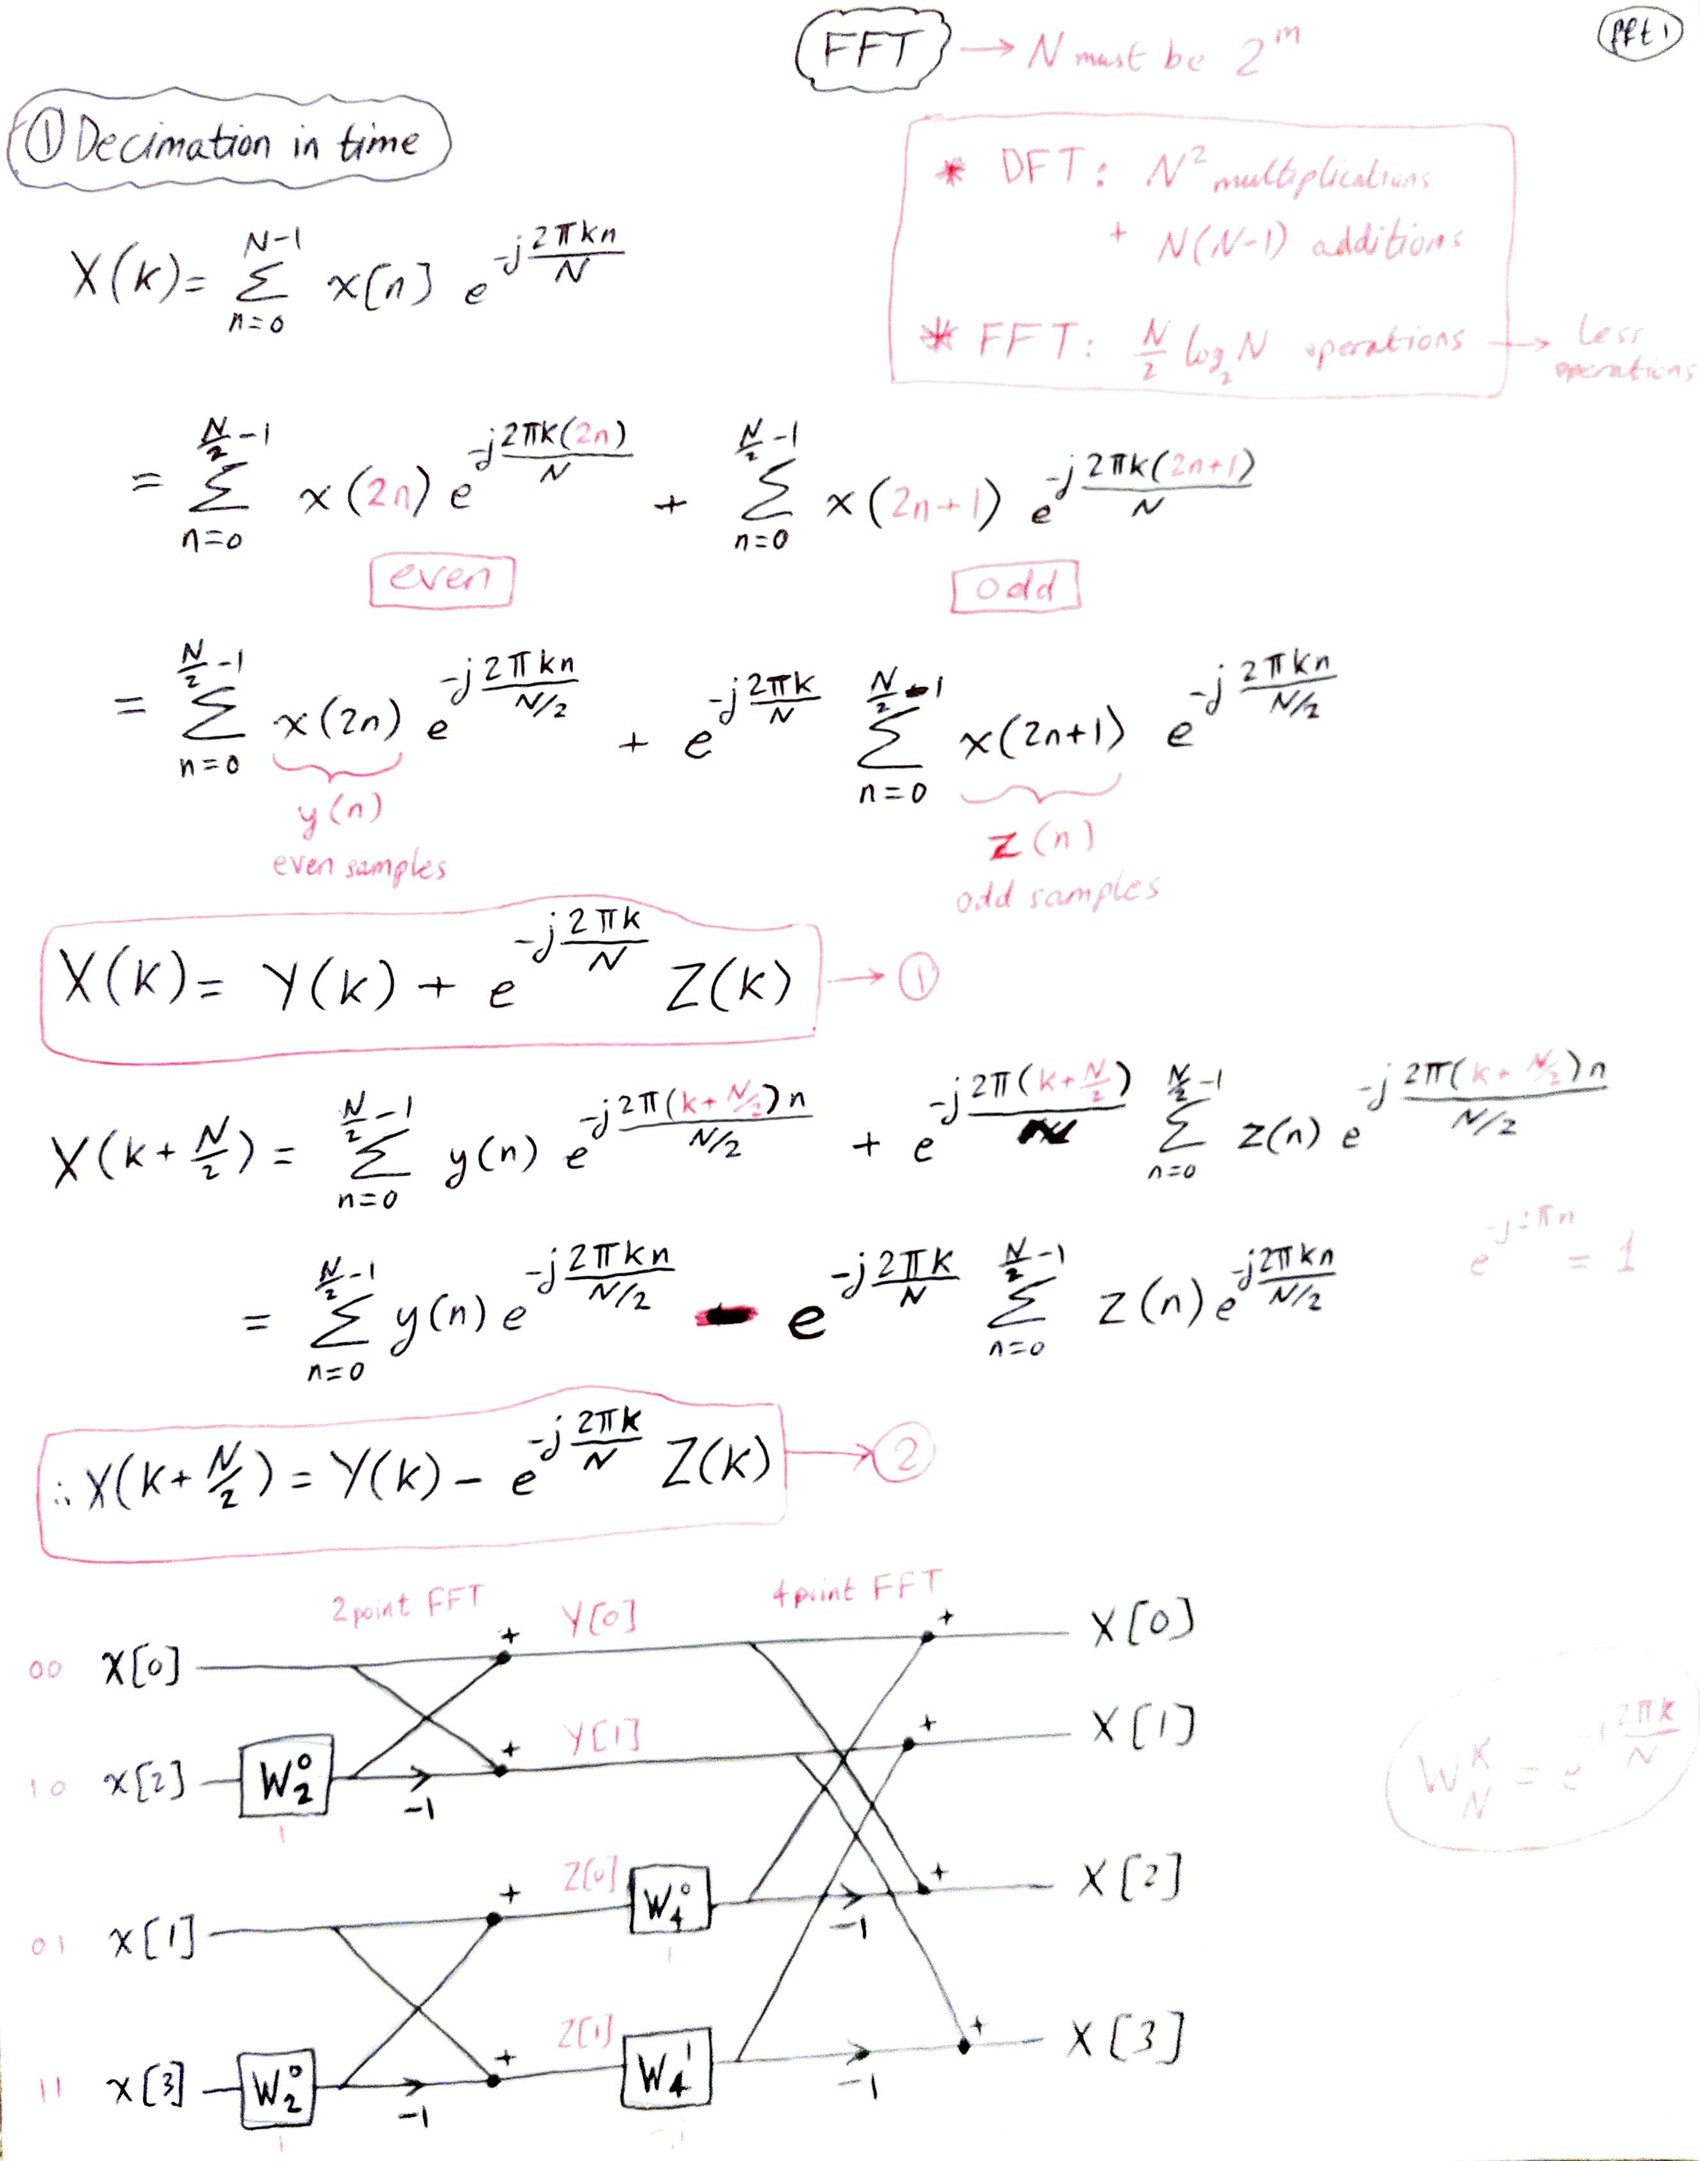 FFT → N must be 2^m
fft 1
① Decimation in time
* DFT: N² multiplications
+ N(N-1) additions
* FFT: N/2 log₂N operations → Less operations
X(k) = Σ_{n=0}^{N-1} x[n] e^{-j2πkn/N}
= Σ_{n=0}^{N/2-1} x(2n) e^{-j2πk(2n)/N} + Σ_{n=0}^{N/2-1} x(2n+1) e^{-j2πk(2n+1)/N}
even odd
= Σ_{n=0}^{N/2-1} x(2n) e^{-j2πkn/(N/2)} + e^{-j2πk/N} Σ_{n=0}^{N/2-1} x(2n+1) e^{-j2πkn/(N/2)}
y(n) z(n)
even samples odd samples
X(k) = Y(k) + e^{-j2πk/N} Z(k) → ①
X(k+N/2) = Σ_{n=0}^{N/2-1} y(n) e^{-j2π(k+N/2)n/(N/2)} + e^{-j2π(k+N/2)/N} Σ_{n=0}^{N/2-1} z(n) e^{-j2π(k+N/2)n/(N/2)}
e^{-j2πn} = 1
= Σ_{n=0}^{N/2-1} y(n) e^{-j2πkn/(N/2)} - e^{-j2πk/N} Σ_{n=0}^{N/2-1} z(n) e^{-j2πkn/(N/2)}
∴ X(k+N/2) = Y(k) - e^{-j2πk/N} Z(k) → ②
2 point FFT 4 point FFT
00 x[0] + Y[0] + X[0]
10 x[2] W₂⁰ -1 + Y[1] + X[1]
1
W_N^k = e^{-j2πk/N}
01 x[1] + Z[0] W₄⁰ -1 + X[2]
1
11 x[3] W₂⁰ -1 + Z[1] W₄¹ -1 + X[3]
1